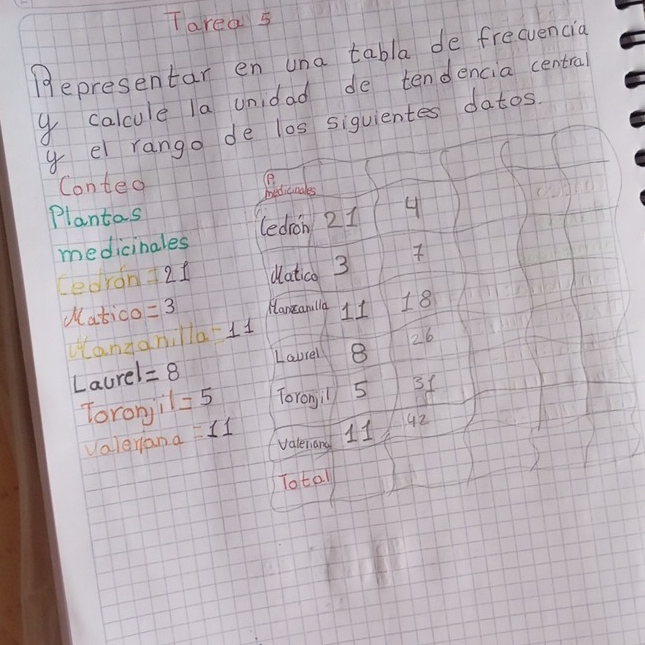 Tarea 5
Representar en una tabla de frecuencia
y calcule la unidad de tendencia central
y el rango de los siguientes datos.
Conteo
Plantas
medicinales
Cedrón = 21
Matico = 3
Manzanilla = 11
Laurel = 8
Toronjil = 5
Valeriana = 11
P. medicinales
Cedrón 21 4
Matico 3 7
Manzanilla 11 18
Laurel 8 26
Toronjil 5 31
Valeriana 11 42
Total